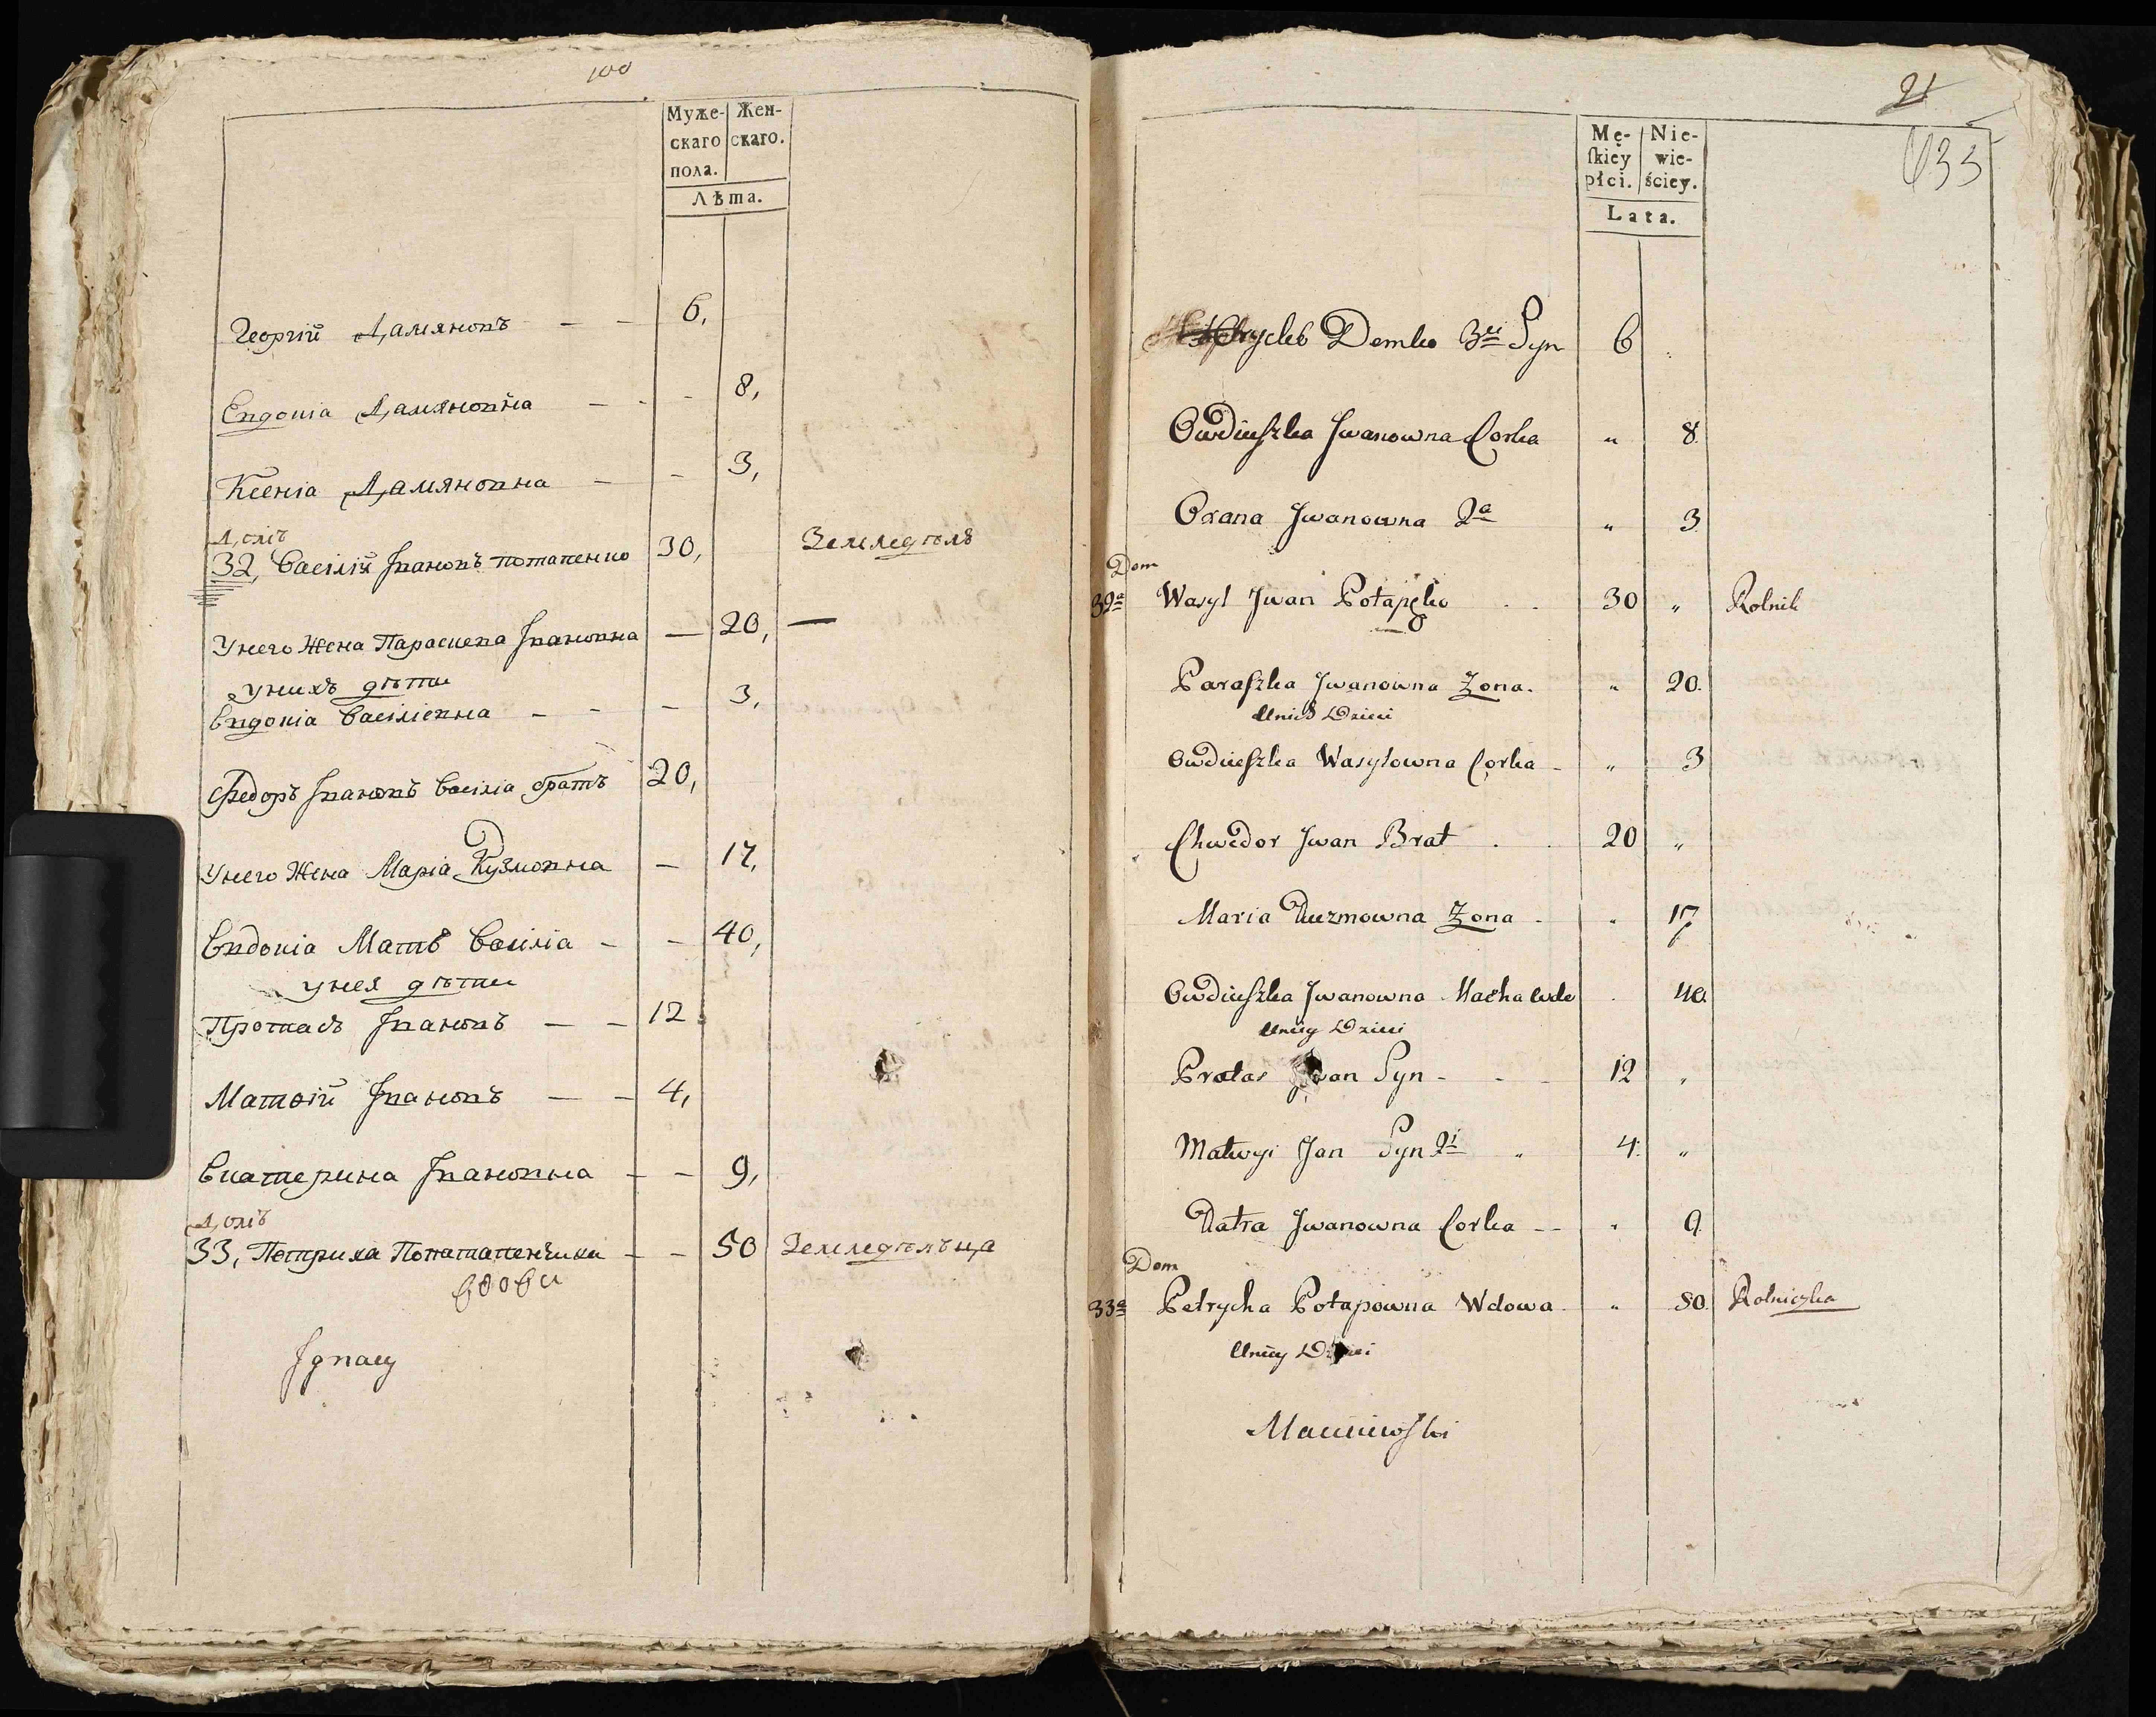 100
Муже-
скаго
пола.
Жен-
скаго.
Лѣта.
Георгій Дамяновъ — — 6,
Евдокіа Дамяновна — - - 8,
Ксеніа Дамяновна — — 3,
Домъ
32, Василій Івановъ Потапенко 30, Земледѣлъ
У него Жена Параскева Івановна — 20, —
у нихъ дѣти
Евдокіа Василіевна — - — 3,
Федоръ Івановъ Василіа братъ 20,
У него Жена Маріа Кузмовна — 17,
Евдокіа Мать Василіа — — 40,
у нея дѣти
Протасъ Івановъ — — 12
Матвій Івановъ — — 4,
Екатерина Івановна — — 9,
Домъ
33, Петриха Потапенчиха — — 50 Земледѣлъца
вдова
Ignacy
21
433
Mę-
ſkiéy
płci.
Nie-
wie-
ściey.
Lata.
Demko 3ci Syn 6
Owdiuszka Iwanowna Corka " 8
Oxana Iwanowna 2a " 3
Dom
32a Wasyl Iwan Potapęko 30 " Rolnik
Paraszka Iwanowna Zona. " 20.
Unich Dzieci
Owdiuszka Wasylowna Corka - " 3
Chwedor Iwan Brat . . 20 "
Maria Kuzmowna Zona - " 17
Owdiuszka Iwanowna Matka Wdo . 40.
Unięy Dzieci
Protas Iwan Syn - - - 12 "
Matwyi Jan Syn 2i " 4. "
Katra Iwanowna Corka -- " 9
Dom
33a Petrycha Potapowna Wdowa - " 50. Rolniczka
Unięy Dzieci